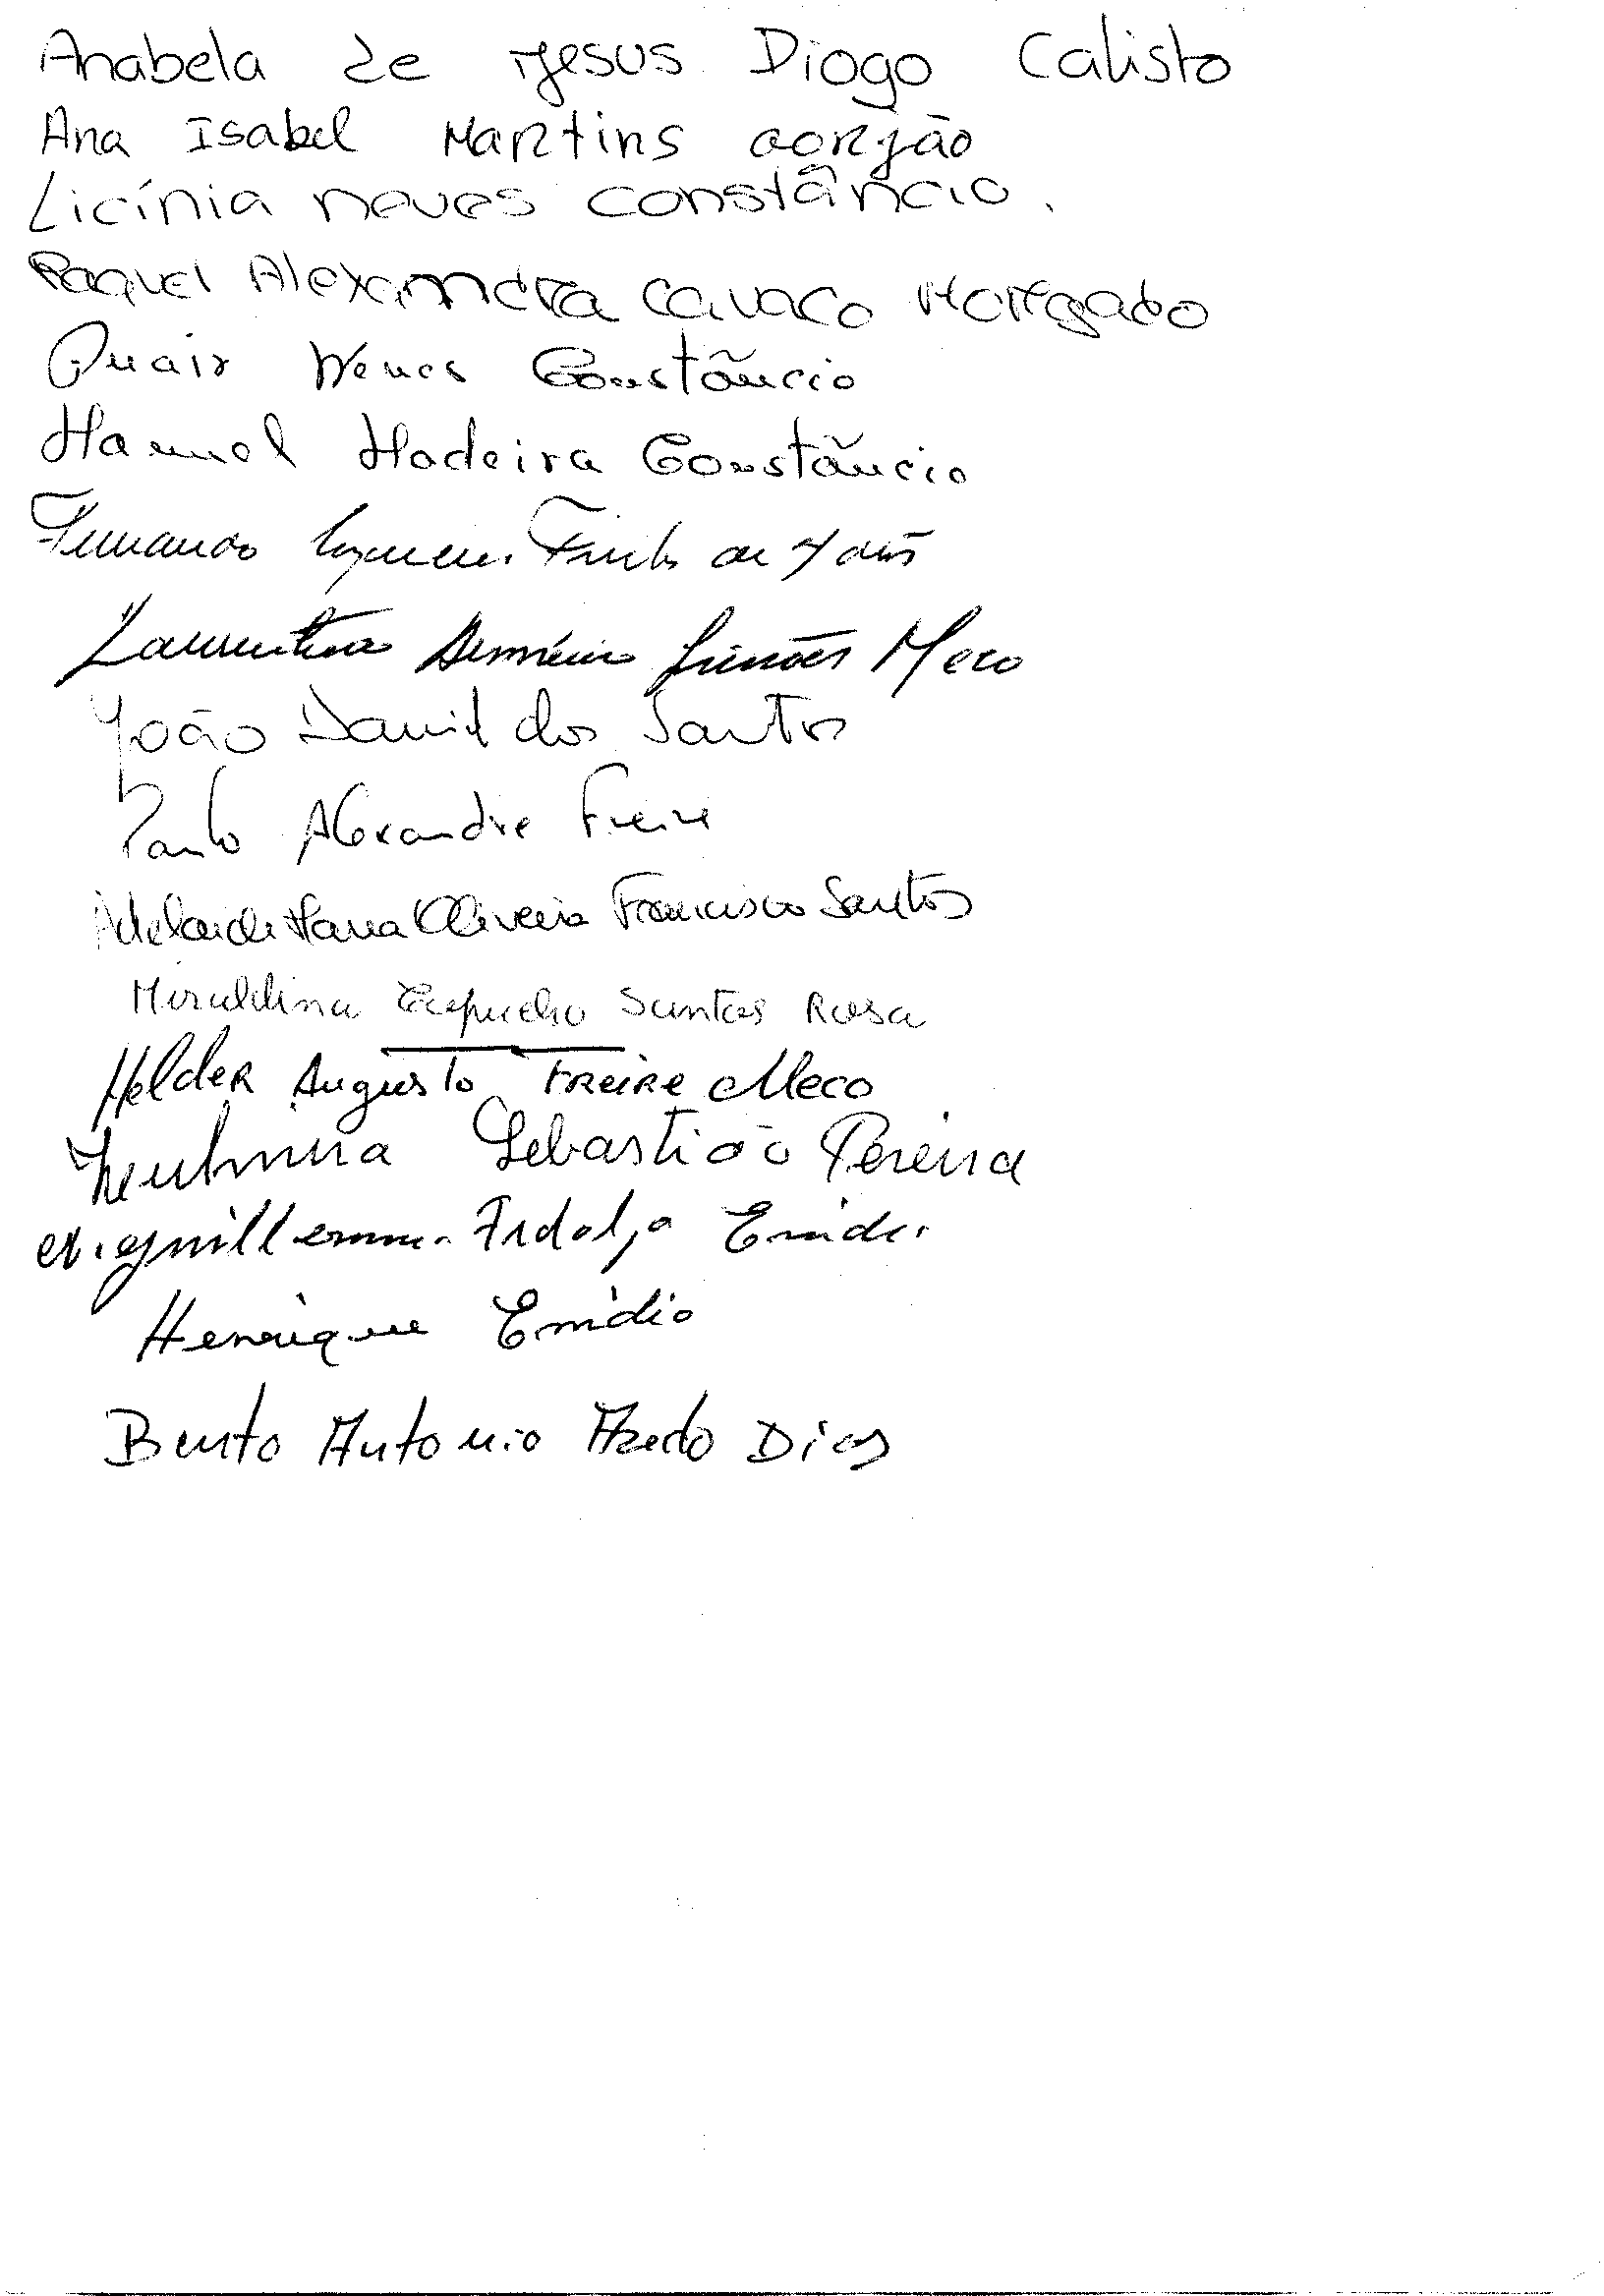 Anabela de Jesus Diogo Calisto
Ana Isabel Martins Gorjão
Licínia neves constâncio.
Raquel Alexandra Cavaco Morgado
Neves Constãncio
Manuel Madeira Constãncio
Fernando
Laurentina Simões Meco
João David dos Santos
Paulo Alexandre Freire
Adelaide Maria Oliveira Francisco Santos
Miraldina Santos Rosa
Helder Augusto Freire Meco
Zeulmira Sebastião Pereira
Fidalgo Emidio
Henrique Emídio
Bento Antonio Azedo Dias